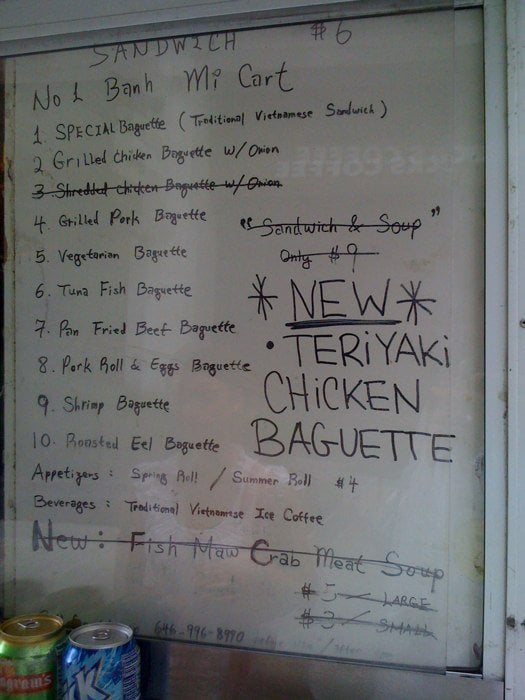 SANDWICH $6
No 1 Banh Mi Cart
1. SPECIAL Baguette (Traditional Vietnamese Sandwich)
2 Grilled Chicken Baguette w/ Onion
3. Shredded Chicken Baguette w/ Onion
4. Grilled Pork Baguette
5. Vegetarian Baguette
6. Tuna Fish Baguette
7. Pan Fried Beef Baguette
8. Pork Roll & Eggs Baguette
9. Shrimp Baguette
10. Roasted Eel Baguette
"Sandwich & Soup"
Only $9
* NEW *
• TERiYAKi
CHiCKEN
BAGUETTE
Appetizers : Spring Roll / Summer Roll $4
Beverages : Traditional Vietnamese Ice Coffee
New : Fish Maw Crab Meat Soup
$5 LARGE
$3 SMALL
646-996-8990